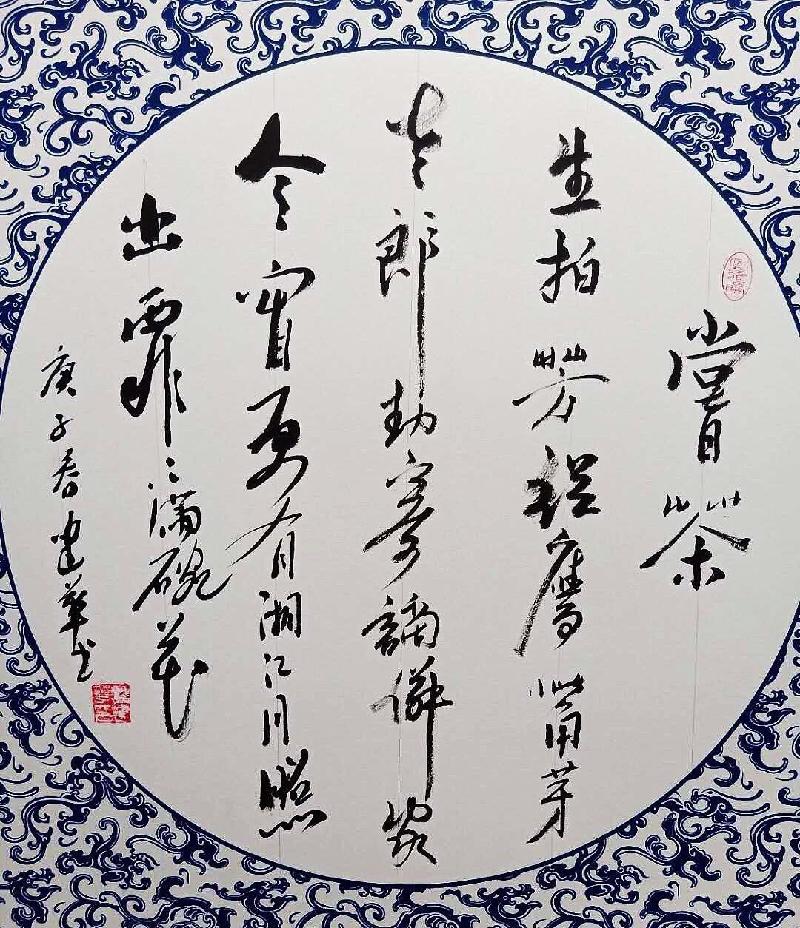 嘗茶
生拍芳叢鷹觜芽
老郎封寄謫僊家
今宵更有湘江月照
出霏〻滿碗花
庚子春建華书